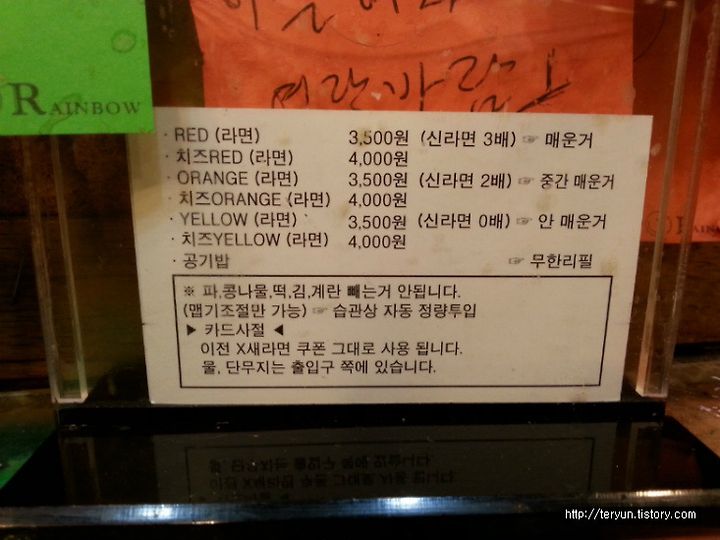 RAINBOW
· RED (라면) 3,500원 (신라면 3배) ☞ 매운거
· 치즈RED (라면) 4,000원
· ORANGE (라면) 3,500원 (신라면 2배) ☞ 중간 매운거
· 치즈ORANGE (라면) 4,000원
· YELLOW (라면) 3,500원 (신라면 0배) ☞ 안 매운거
· 치즈YELLOW (라면) 4,000원
· 공기밥 ☞ 무한리필
※ 파,콩나물,떡,김,계란 빼는거 안됩니다.
(맵기조절만 가능) ☞ 습관상 자동 정량투입
▶ 카드사절 ◀
이전 X새라면 쿠폰 그대로 사용 됩니다.
물, 단무지는 출입구 쪽에 있습니다.
http://teryun.tistory.com